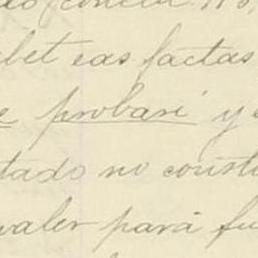 bet eas factas
e probari y
tado no constit
valer para fu